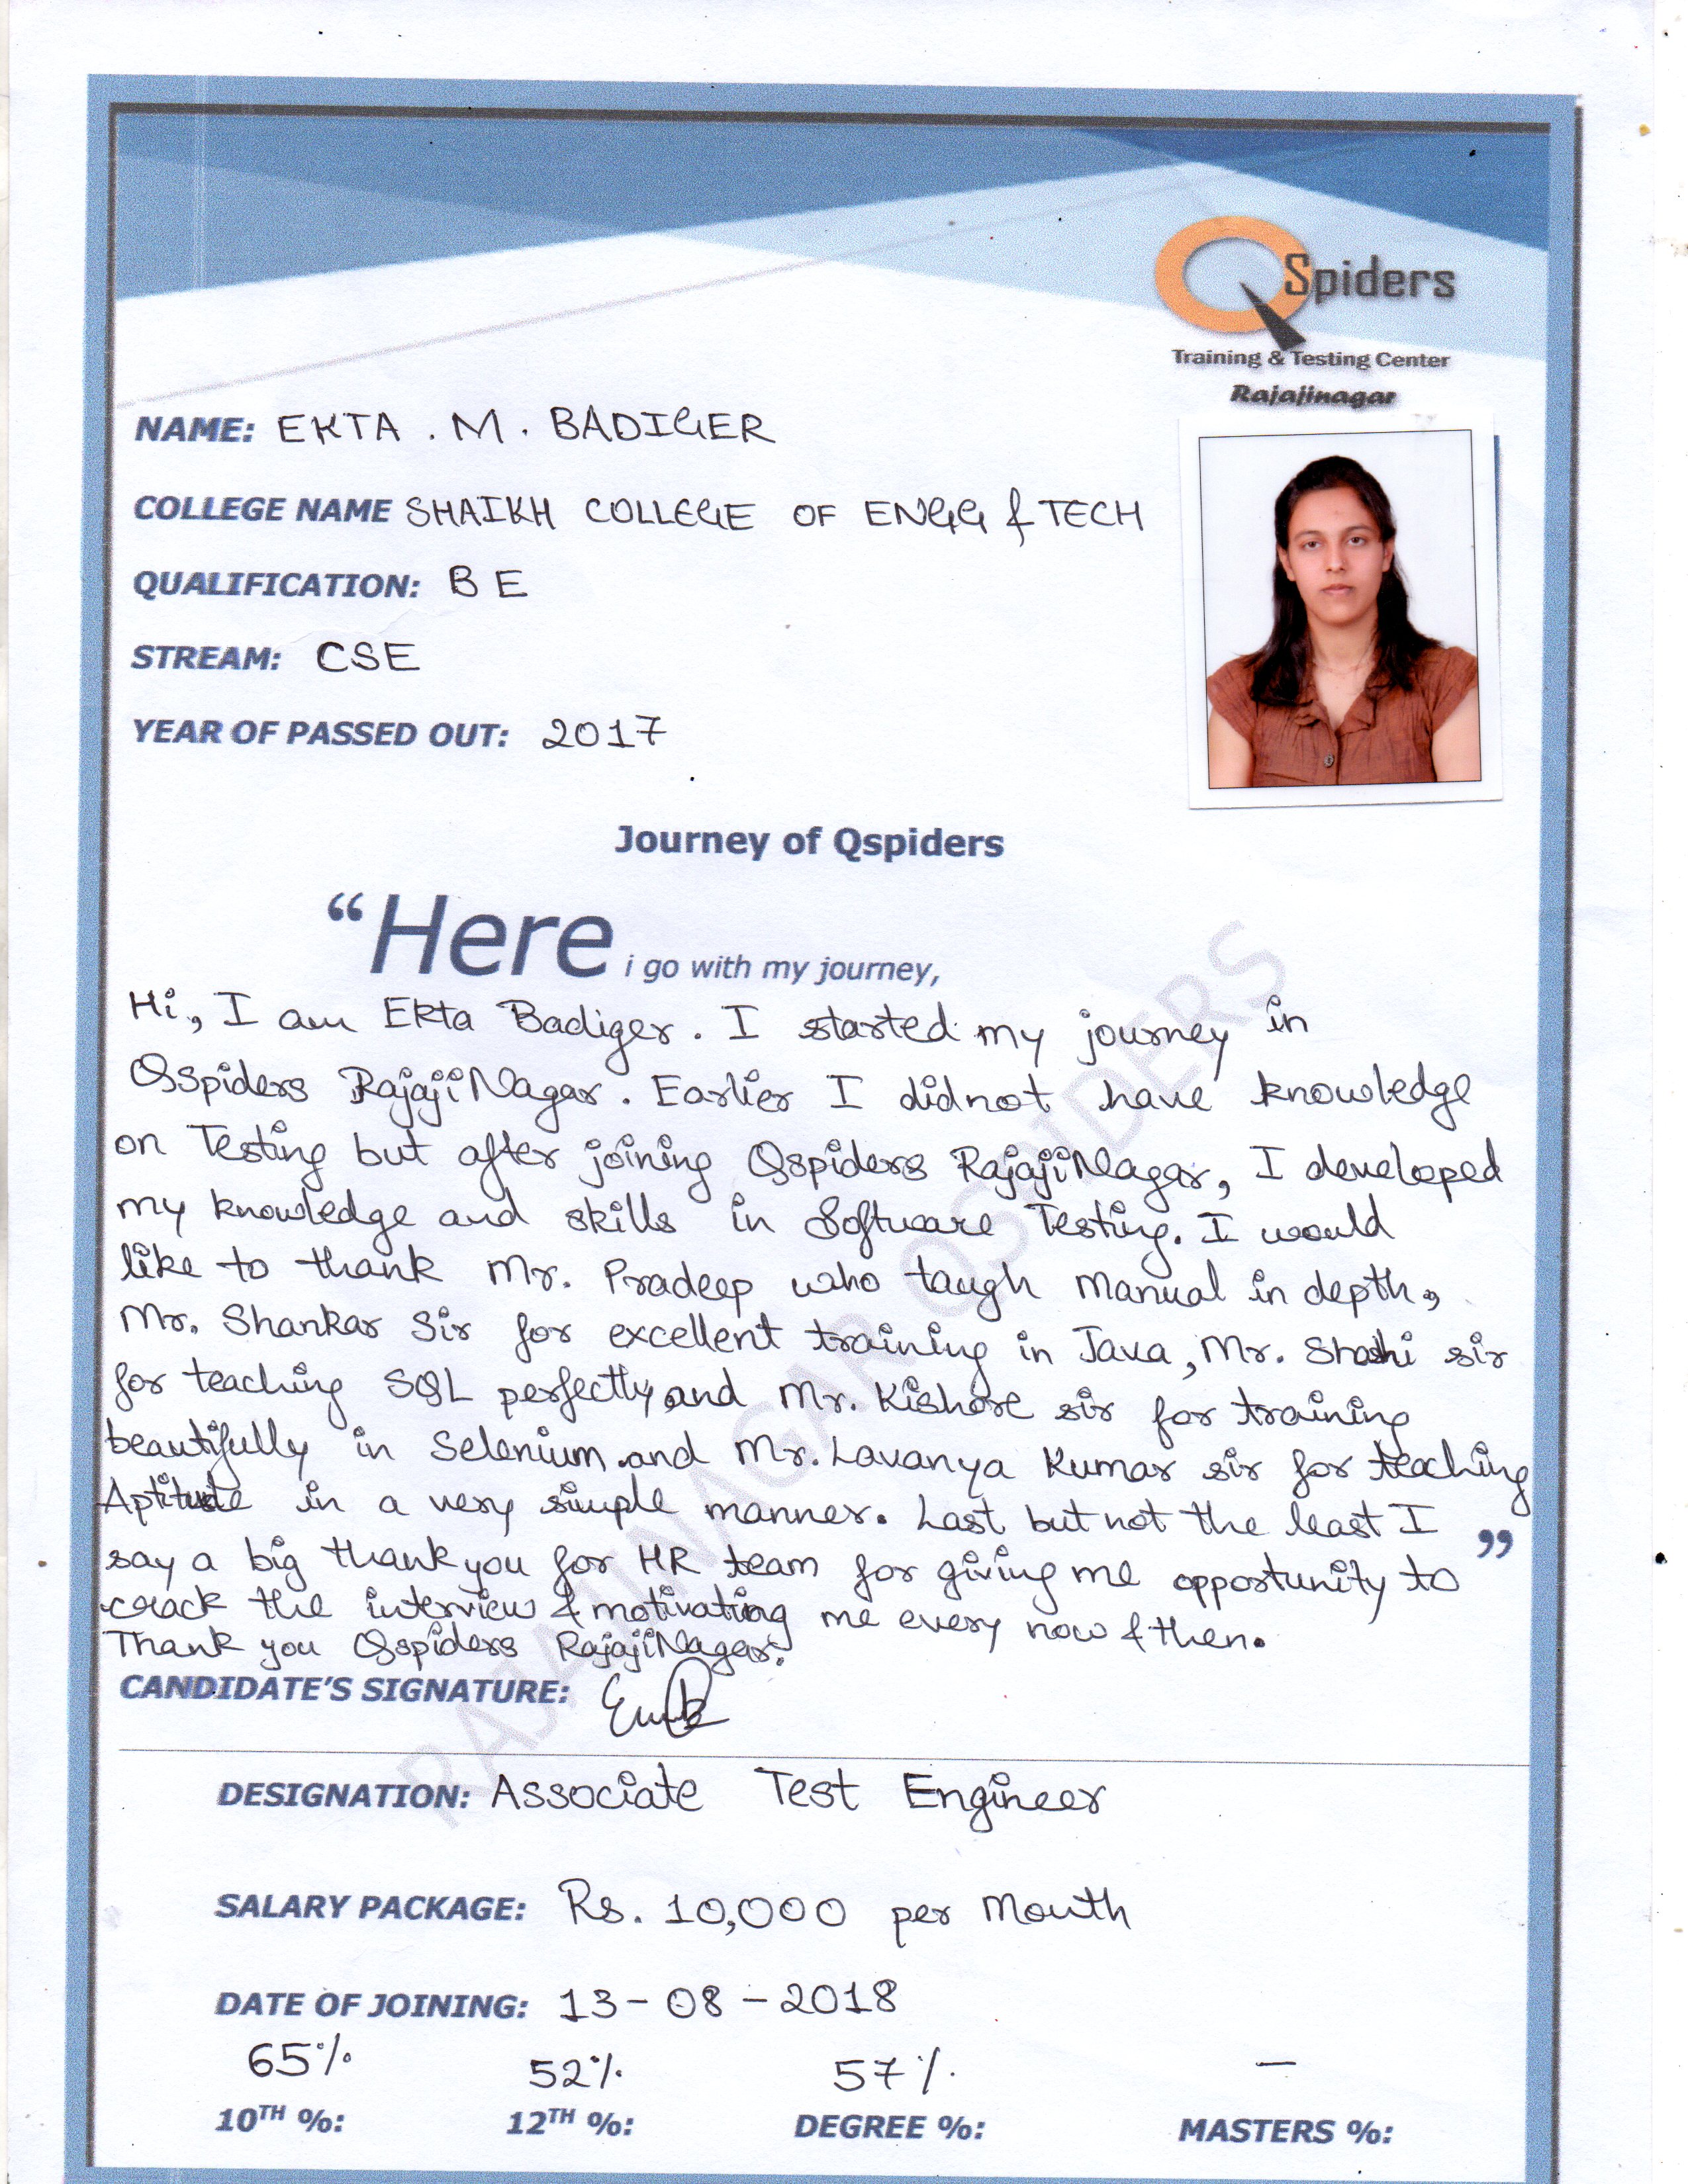 QSpiders
Training & Testing Center
Rajajinagar
NAME: EKTA . M . BADIGER
COLLEGE NAME SHAIKH COLLEGE OF ENGG & TECH
QUALIFICATION: B E
STREAM: CSE
YEAR OF PASSED OUT: 2017
Journey of Qspiders
“Here i go with my journey,
Hi, I am Ekta Badiger. I started my journey in
Qspiders RajajiNagar. Earlier I didnot have knowledge
on Testing but after joining Qspiders RajajiNagar, I developed
my knowledge and skills in Software Testing. I would
like to thank Mr. Pradeep who taugh Manual in depth,
Mr. Shankar Sir for excellent training in Java, Mr. Shashi sir
for teaching SQL perfectly and Mr. Kishore sir for training
beautifully in Selenium and Mr. Lavanya Kumar sir for teaching
Aptitude in a very simple manner. Last but not the least I
say a big thank you for HR team for giving me opportunity to ”
crack the interview & motivating me every now & then.
Thank you Qspiders RajajiNagar.
CANDIDATE’S SIGNATURE:
DESIGNATION: Associate Test Engineer
SALARY PACKAGE: Rs. 10,000 per Month
DATE OF JOINING: 13 - 08 - 2018
65% 52% 57% —
10TH %: 12TH %: DEGREE %: MASTERS %:
RAJAJINAGAR QSPIDERS